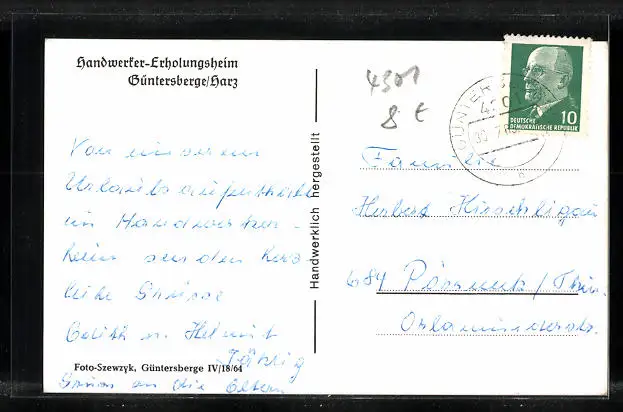 Handwerker-Erholungsheim
Güntersberge/Harz
Von unserem
Urlaubsaufenthalt
im Handwerker-
heim senden herz
liche Grüsse
Edith u. Helmut
Gruss an die Eltern
Foto-Szewzyk, Güntersberge IV/18/64
Handwerklich hergestellt
4301
8 €
DEUTSCHE
DEMOKRATISCHE REPUBLIK
10
Familie
Herbert
684 Pössneck / Thür.